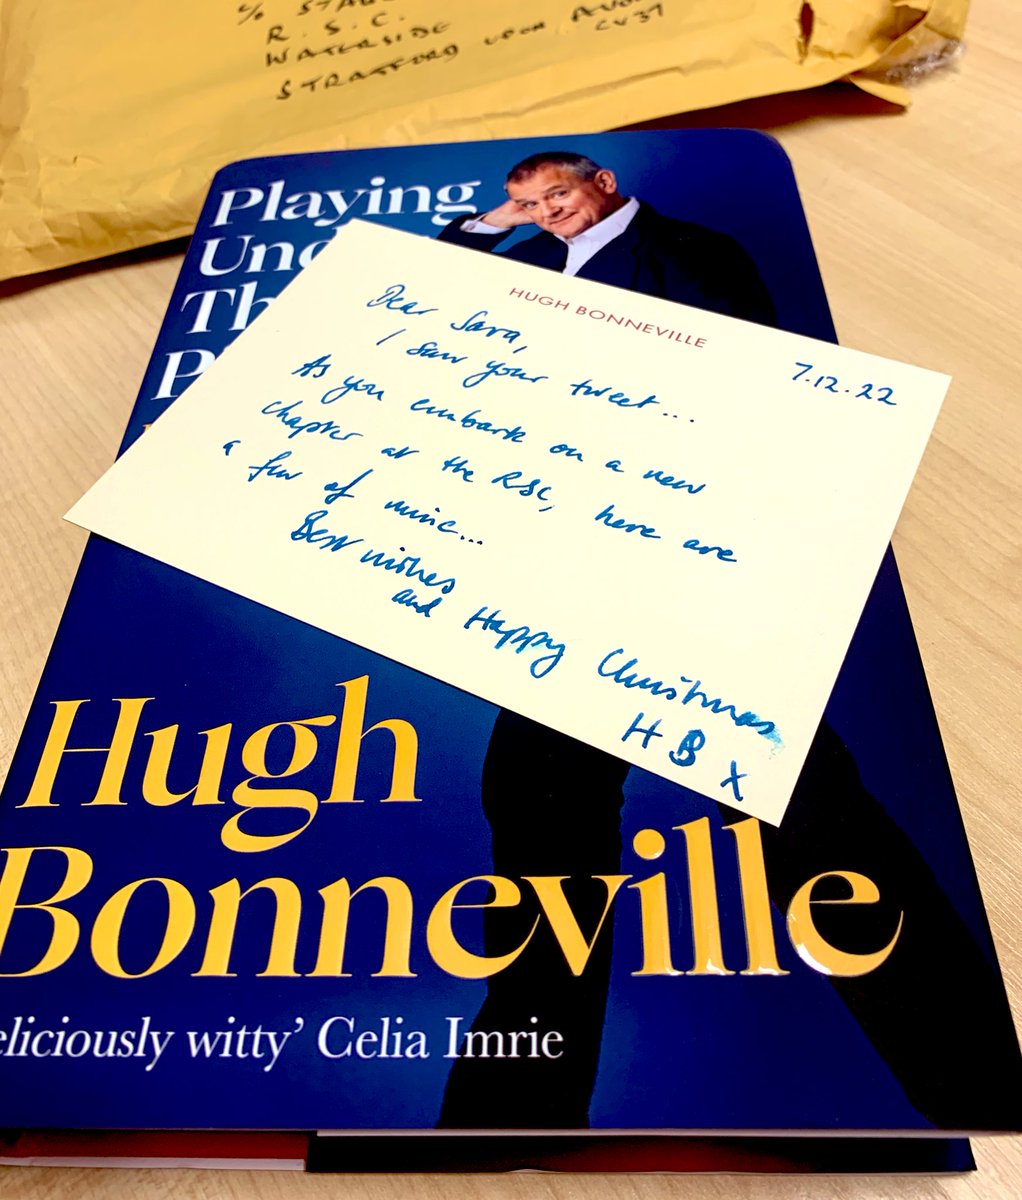 R.S.C.
WATERSIDE
STRATFORD UPON AVON
CV37
Playing
Und
Th
P
HUGH BONNEVILLE
7.12.22
Dear Sara,
I saw your tweet...
As you embark on a new
chapter at the RSC, here are
a few of mine...
Best wishes
and Happy Christmas
HB x
Hugh
Bonneville
eliciously witty’ Celia Imrie